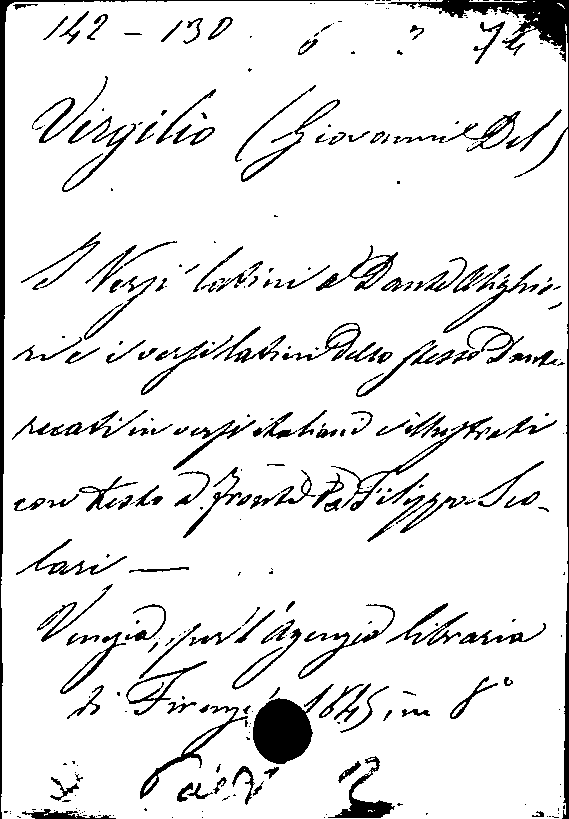 142 - 130. 6. ? 74
Virgilio (Giovanni Del)
I Versi latini a Dante Alighie-
ri e i versi latini dello stesso Dante
recati in versi italiani e illustrati
con testo a fronte da Filippo Sco-
lari —
Venezia, per l'Agenzia libraria
di Firenze, 1845, in 8°